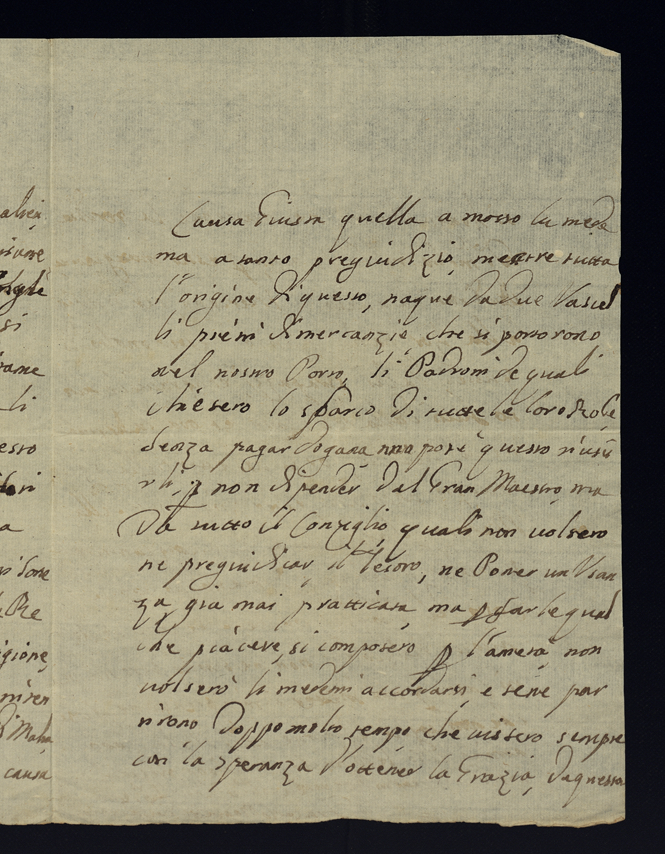 Causa Giusta quella a mosso la mede
ma a tanto pregiudizio, mentre tutta
l'origine di questo, naque da due Vascel
li pieni di mercanzie, che si portorono
nel nostro Porto, li Padroni de quali
chiesero lo sbarco di tutte le loro Robe
senza pagar dogana, ma potè questo riusci
rli, p non dipender dal Gran Maestro, ma
da tutto il Consiglio, quali non volsero
ne pregiudicar il Tesoro, ne Poner un Usan
za già mai pratticata, ma p farle qual
che piacere, si composero p l'ametà, non
volsero li medemi accordarsi, e se ne par
tirono doppo molto tempo che vissero sempre
con la speranza d'ottener la Grazia, da questa
alsi
si
rame
li
esto
a
Re
gione,
di Malta
causa